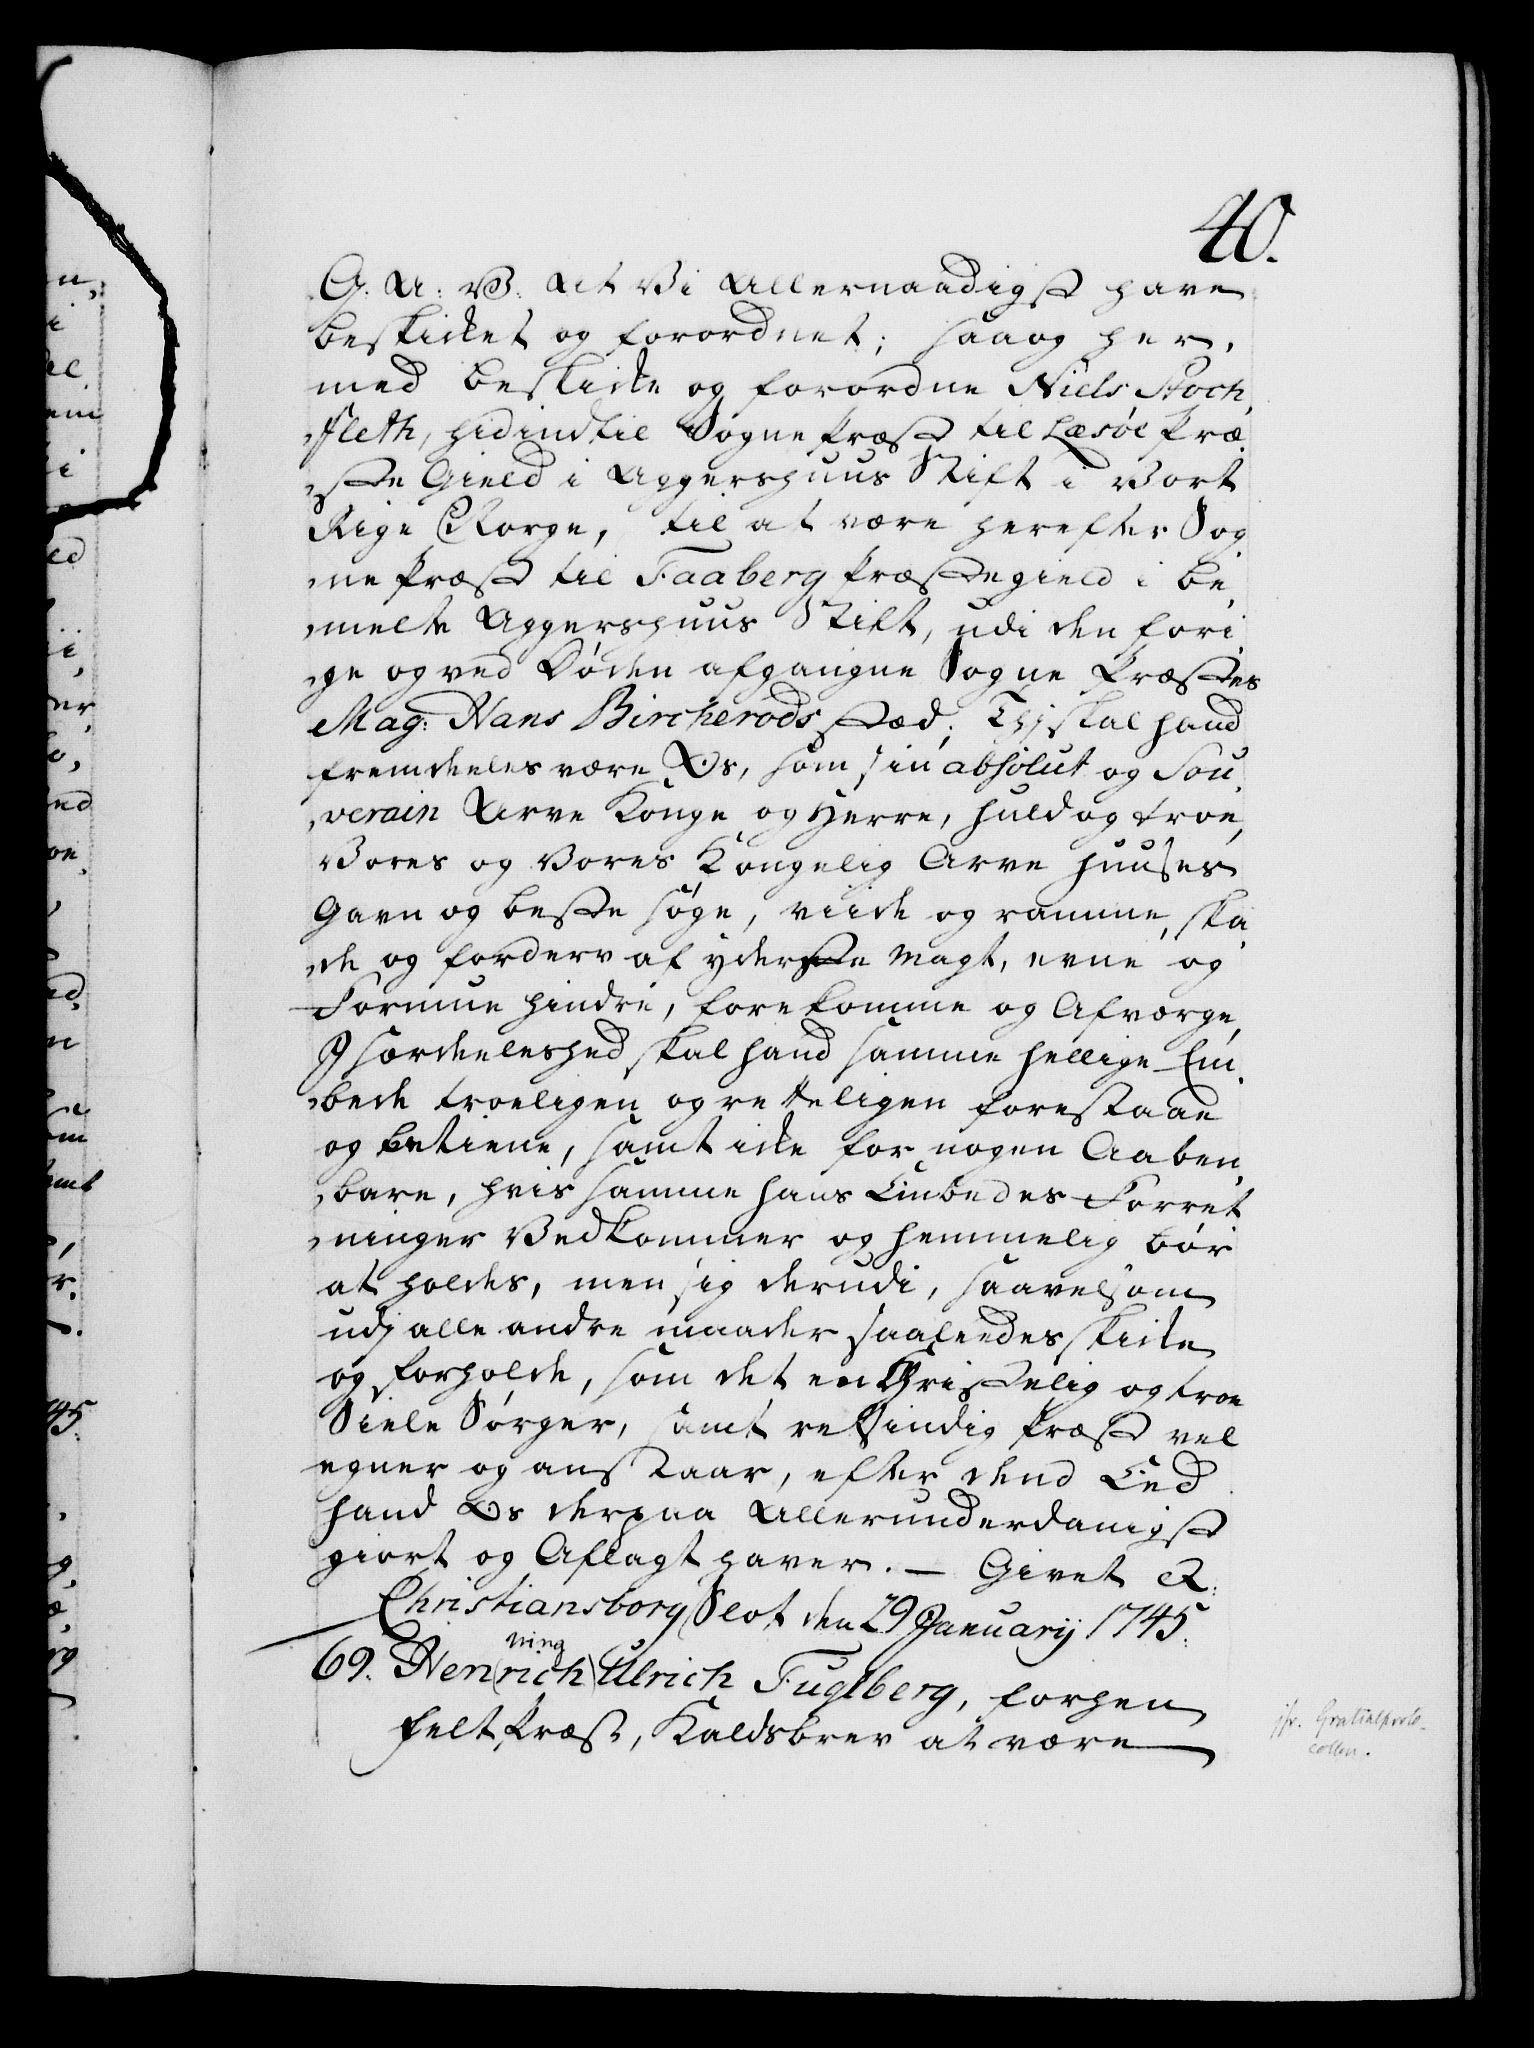 40.
G. A: V. At Vi Allernaadigst have
beskicket og forordnet; saa og her,
med beskicke og forordne Niels Stoch,
fleth, hidindtil Sogne Præst til Læsøe Præ
ste Gield i Aggershuus Stift i Vort
Rige Norge, til at være herefter Sog
ne Præst til Faaberg Præstegield i be,
melte Aggershuus Stift, udi den fori,
ge og ved Døden afgangne Sogne Præstes
Mag: Hans Bircherods stæd; Thj skal hand
fremdeeles være Os, som sin absolut og Sou,
verain Arve Konge og Herre, huld og troe,
Vores og Vores Kongelig Arve Huuses
Gavn og beste søge, viide og ramme, ska,
de og forderv af yderste Magt, evne og
Formue hindre, forekomme og Afværge,
J særdeeleshed skal hand samme hellige Em,
bede troeligen og retteligen forestaae
og betiene, samt icke for nogen Aaben,
bare, hvis samme hans Embedes Forret
ninger Vedkommer og hemmelig bør
at holdes, men sig derudi, saavelsom
udj alle andre maader saaledes skicke
og forholde, som det en Christelig og troe
Siele Sørger, samt retsindig Præst vel
egner og anstaar, efter dend Eed
hand Os derpaa Allerunderdanigst
giort og Aflagt haver. — Givet &:
Christiansborg Slot den 29 Januarij 1745.
ning
69. Hen(rich) Ulrich Fuglberg, forhen
Felt Præst, Kaldsbrev at være
jfr. Gratialproto-
collen.